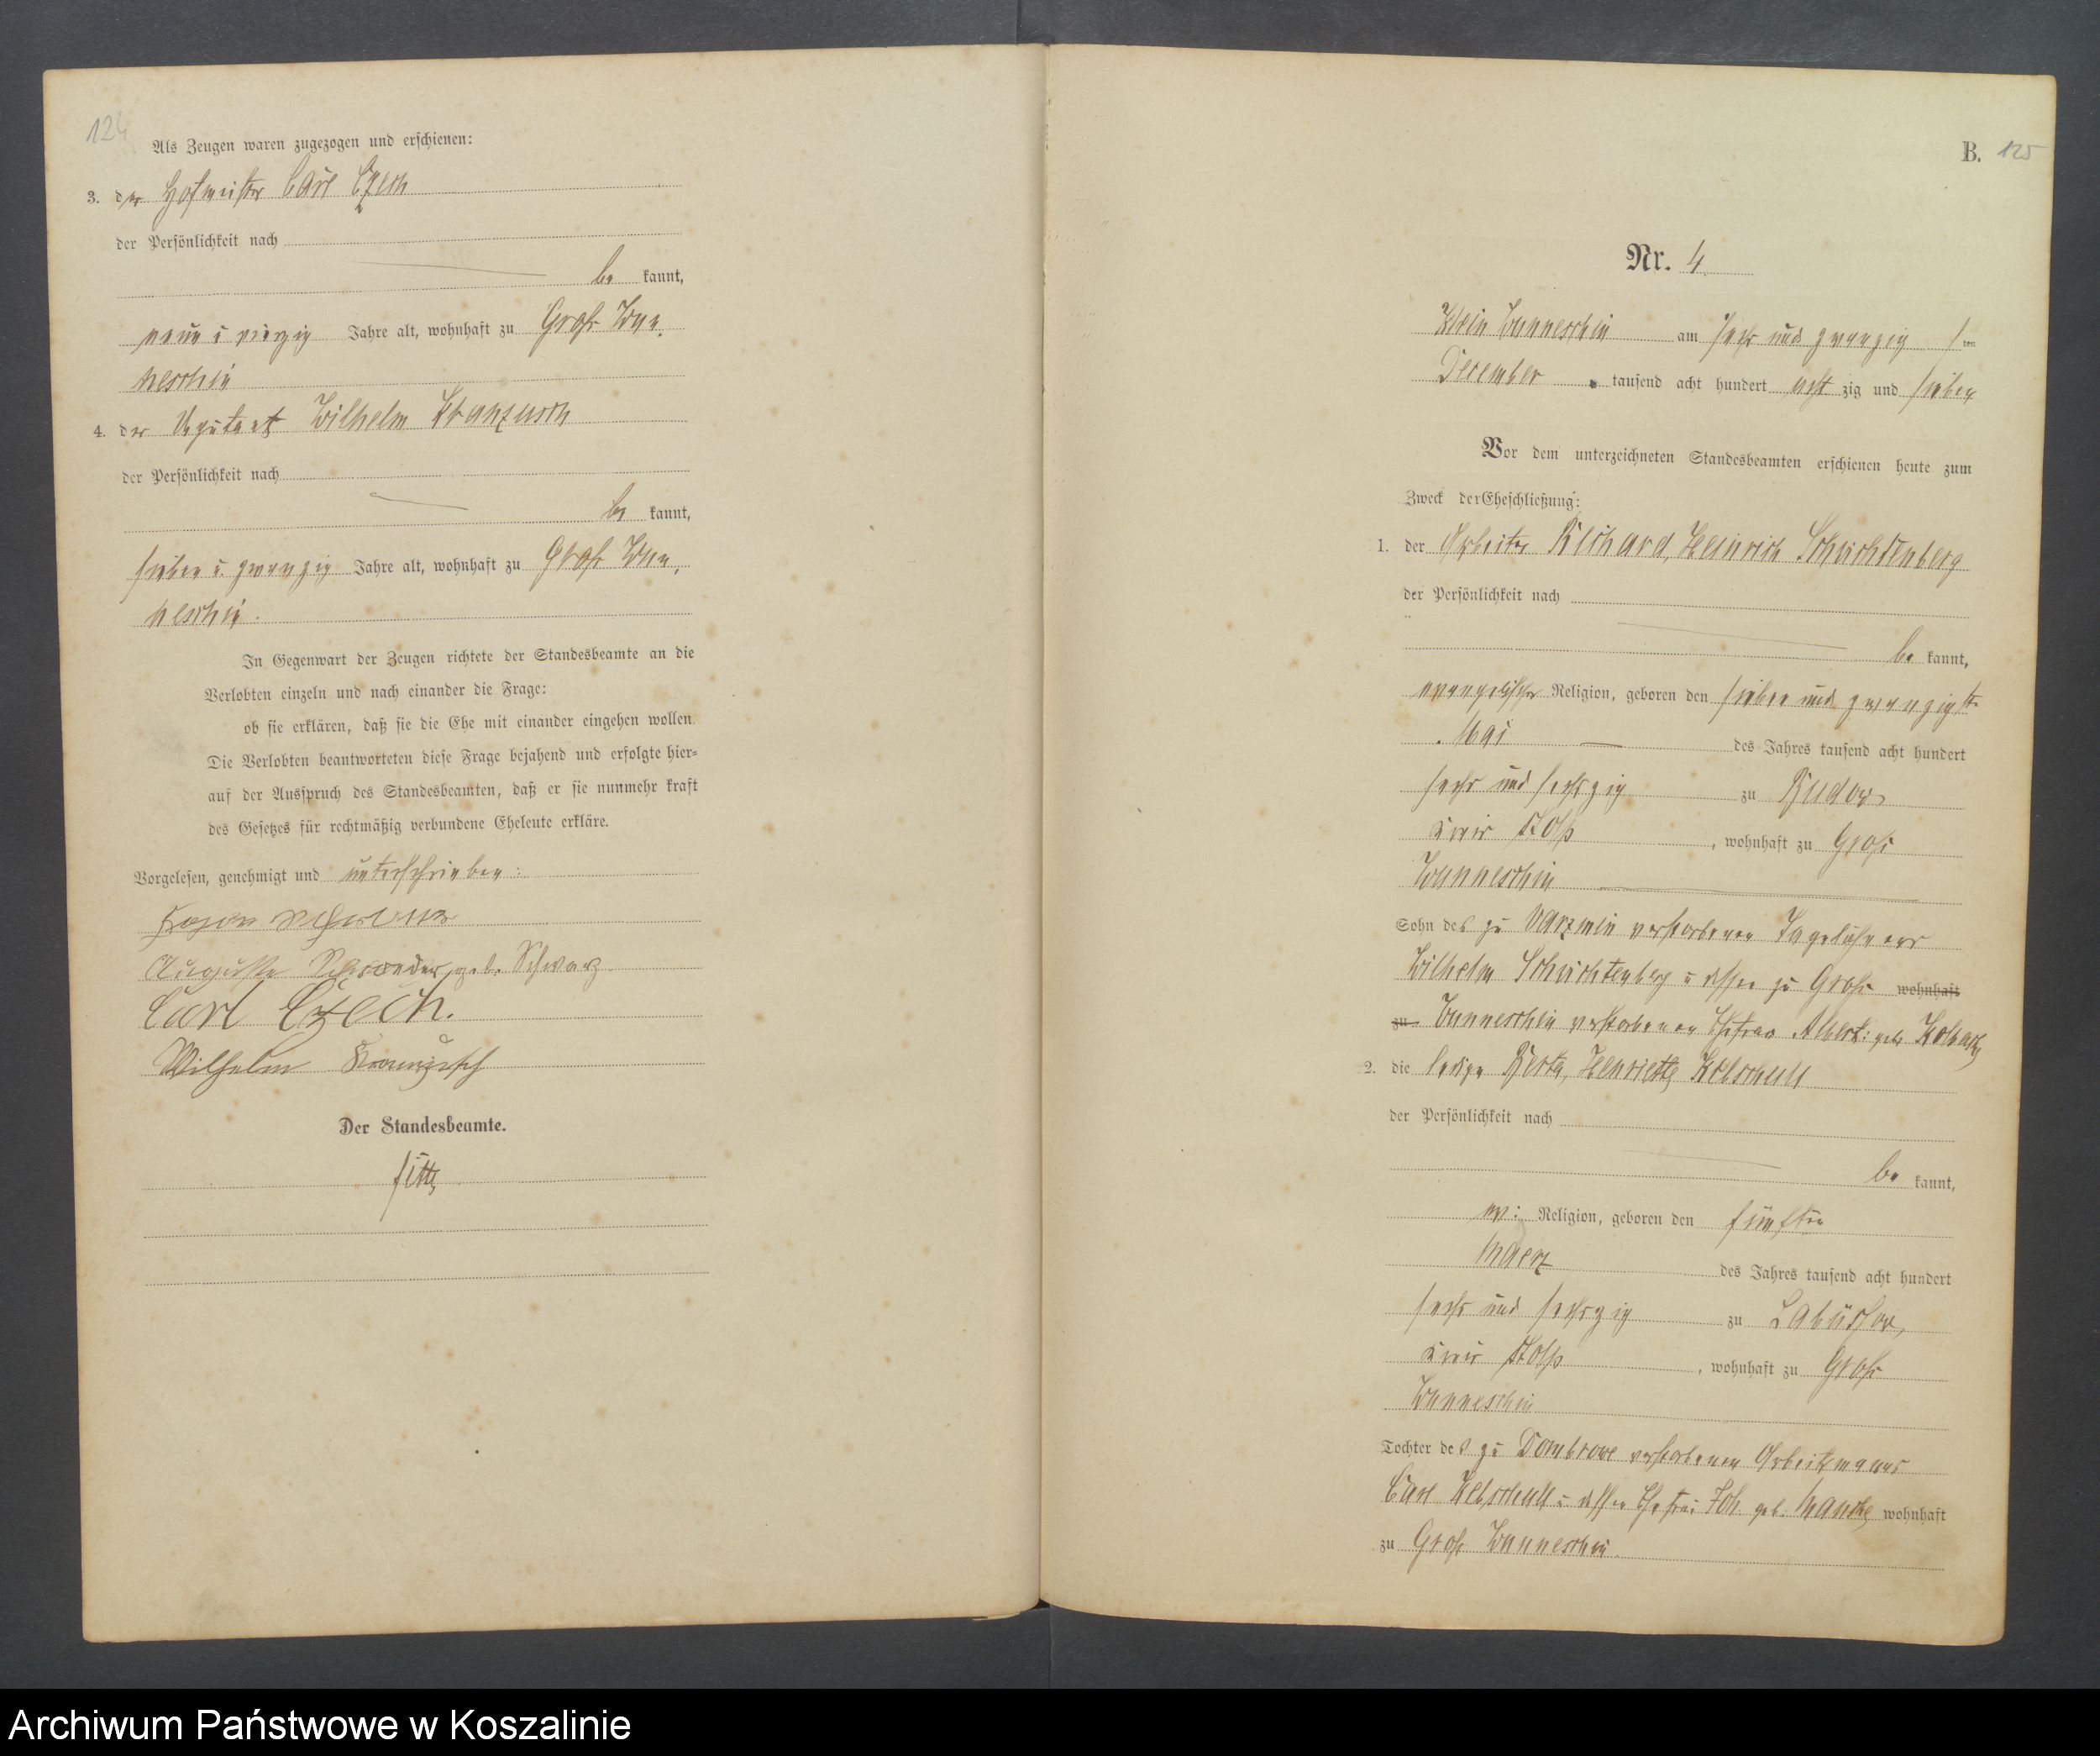 124
Als Zeugen waren zugezogen und erschienen:
3. der Hofmeister Carl Czech
der Persönlichkeit nach
be kannt,
neun u vierzig Jahre alt, wohnhaft zu Groß Wun-
neschin
4. der Deputant Wilhelm Kranzusch
der Persönlichkeit nach
be kannt,
sieben u. zwanzig Jahre alt, wohnhaft zu Groß Wun-
neschin.
In Gegenwart der Zeugen richtete der Standesbeamte an die
Verlobten einzeln und nach einander die Frage:
ob sie erklären, daß sie die Ehe mit einander eingehen wollen.
Die Verlobten beantworteten diese Frage bejahend und erfolgte hier=
auf der Ausspruch des Standesbeamten, daß er sie nunmehr kraft
des Gesetzes für rechtmäßig verbundene Eheleute erkläre.
Vorgelesen, genehmigt und unterschrieben:
Auguste Schroeder, geb. Schwarz
Carl Czech.
Wilhelm
Der Standesbeamte.
B. 125
Nr. 4.
Klein Wunneschin am sechs und zwanzig s ten
December tausend acht hundert acht zig und sieben
Vor dem unterzeichneten Standesbeamten erschienen heute zum
Zweck der Eheschließung:
1. der Arbeiter Richard, Heinrich Schuchtenberg
der Persönlichkeit nach
be kannt,
evangelischer Religion, geboren den sieben und zwanzigste
Mai des Jahres tausend acht hundert
sechs und sechszig zu Budow
Kreis Stolp, wohnhaft zu Groß
Wunneschin
Sohn des zu Varzmin verstorbenen Tagelöhners
Wilhelm Schuchtenberg u dessen zu Groß wohnhaft
zu Wunneschin verstorbenen Ehefrau Albert: geb.
2. die ledige Berta, Henriette
der Persönlichkeit nach
be kannt,
ev: Religion, geboren den fünften
Maerz des Jahres tausend acht hundert
sechs und sechszig zu Labüssow,
Kreis Stolp, wohnhaft zu Groß
Wunneschin
Tochter des zu Dombrowe verstorbenen Arbeitsmannes
Carl u dessen Ehefrau Joh. geb. wohnhaft
zu Groß Wunneschin.
Archiwum Państwowe w Koszalinie